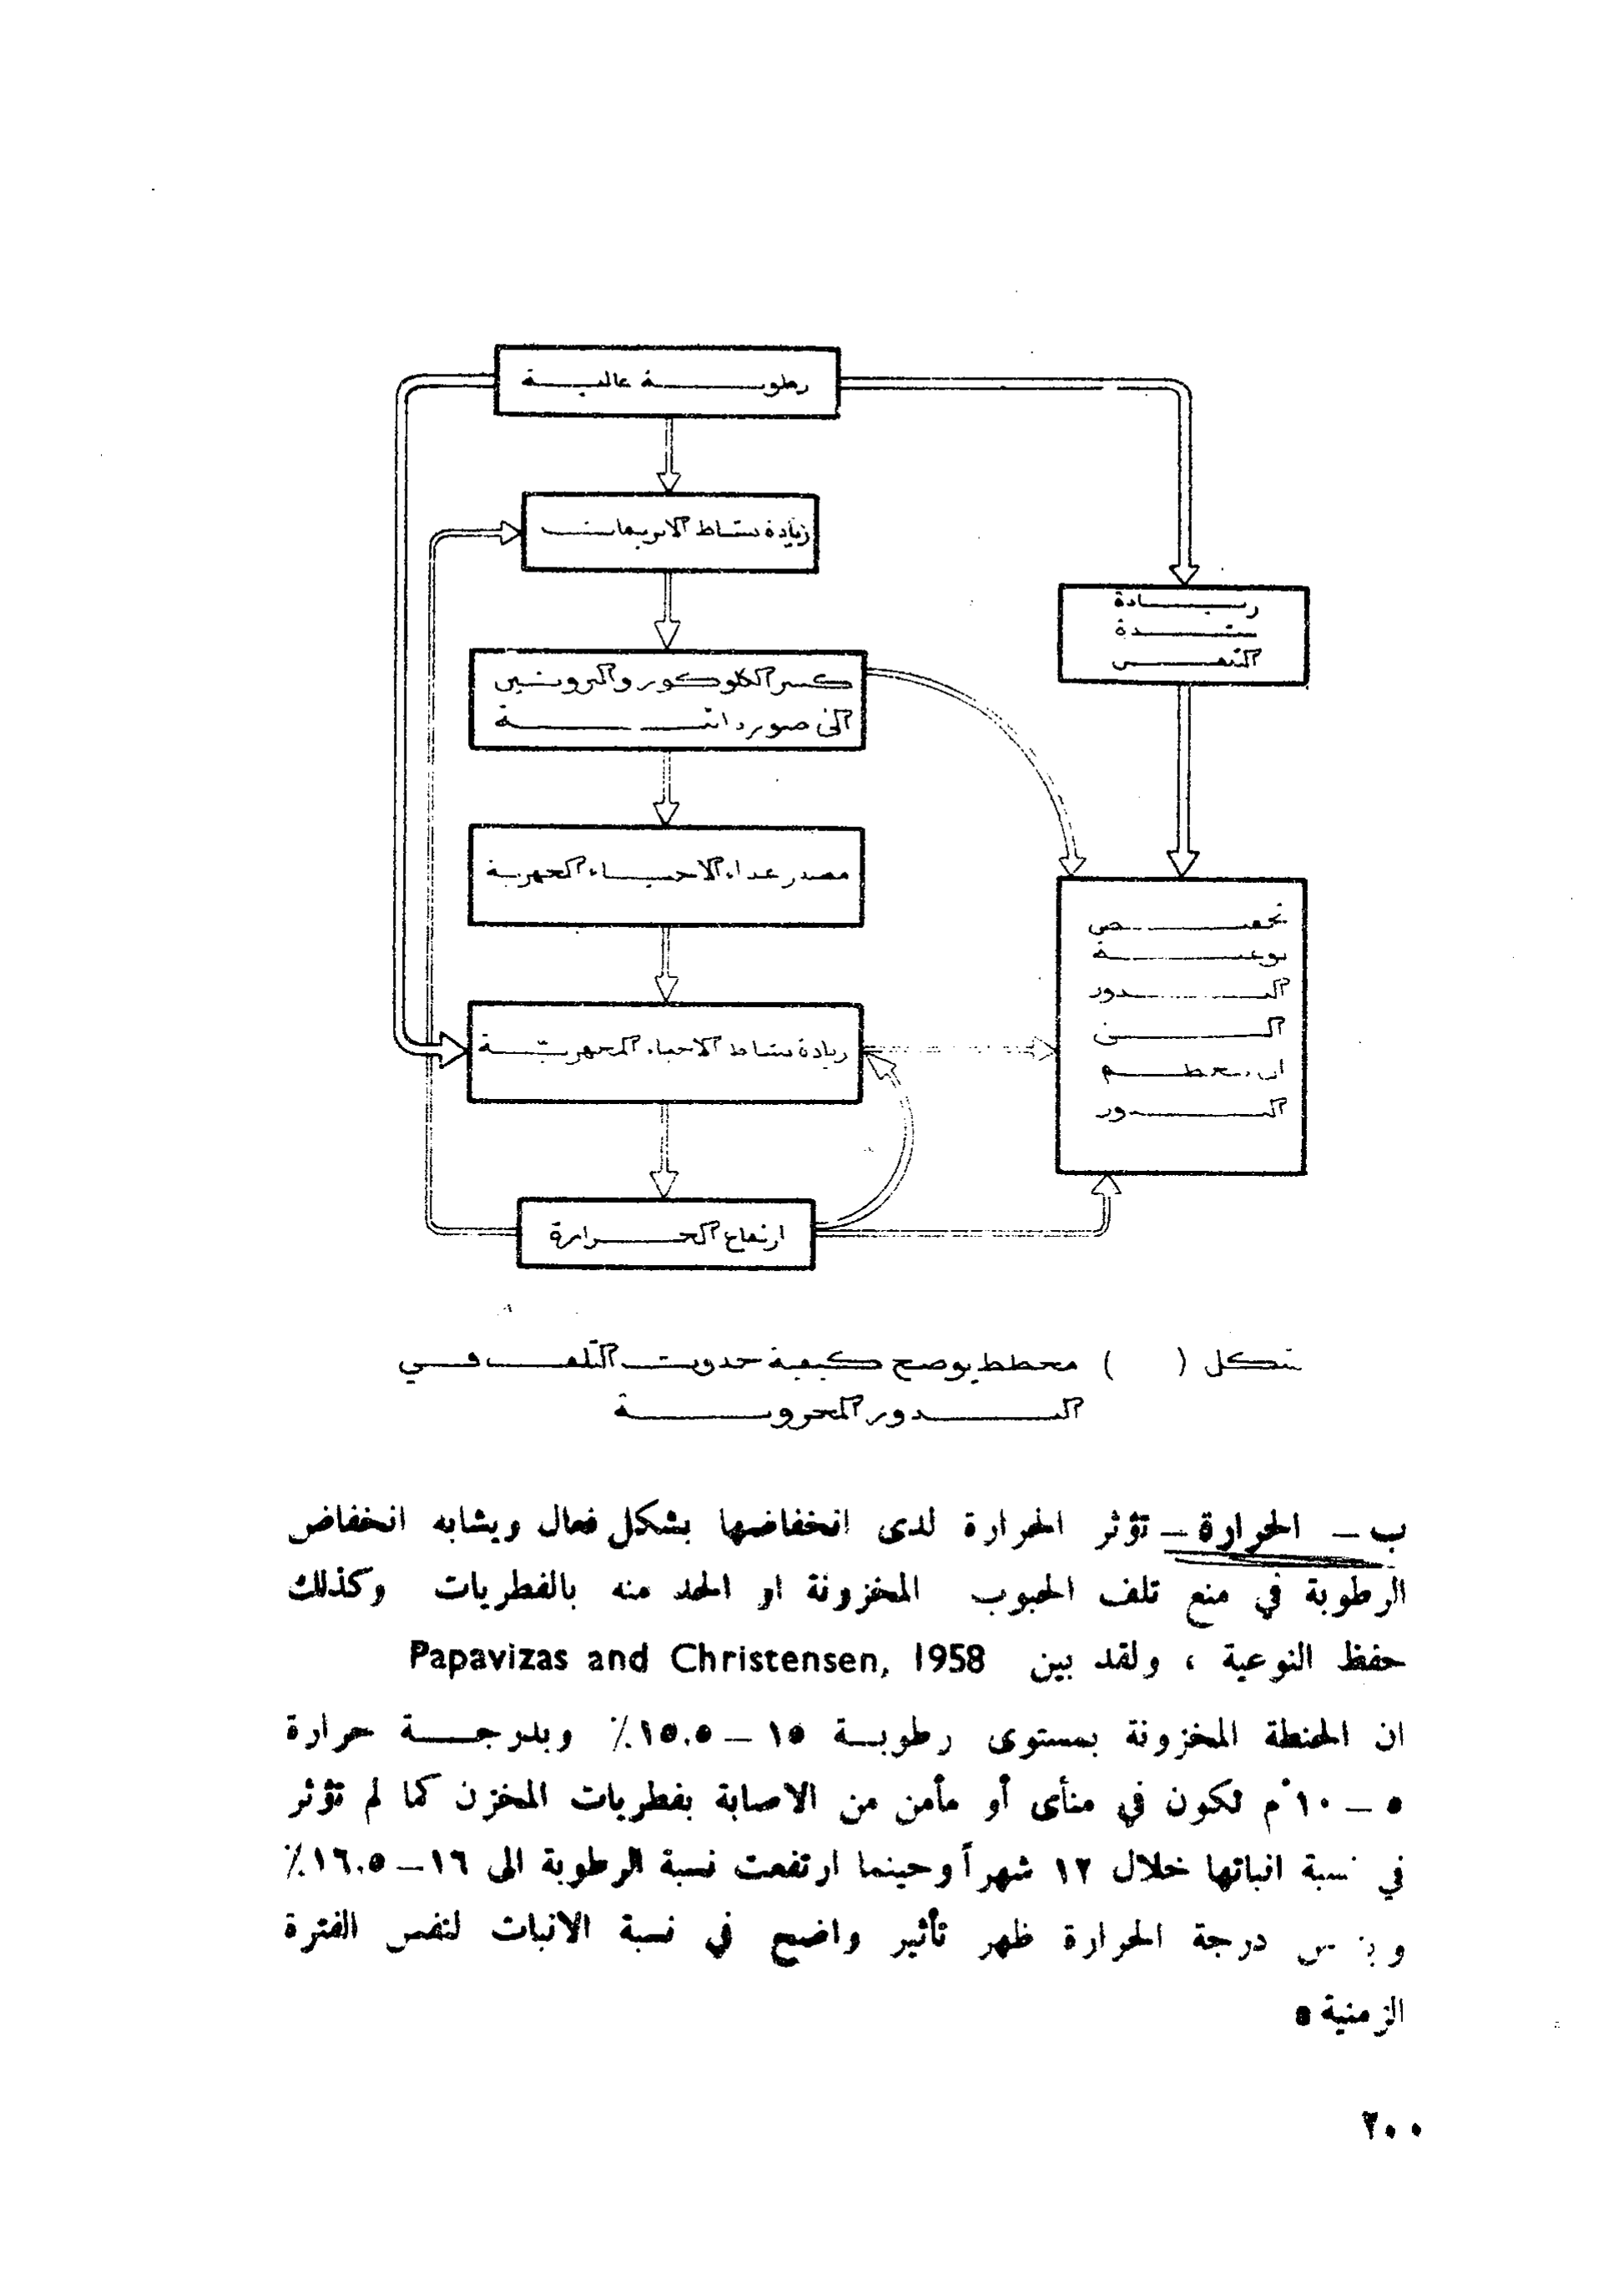 رطوبة عالية
زيادة نشاط الانزيمات
زيادة
شدة
التنفس
كسر الكلوكوز والبروتين
الى صور ذائبة
مصدر غذاء الاحياء المجهرية
زيادة نشاط الاحياء المجهرية
نوعية
البذور
معظم
البذور
ارتفاع الحرارة
شكل ( ) مخطط يوضح كيفية حدوث التلف في
البذور المخزونة
ب ــ الحرارة ــ تؤثر الحرارة لدى انخفاضها بشكل فعال ويشابه انخفاض
الرطوبة في منع تلف الحبوب المخزونة او الحد منه بالفطريات وكذلك
حفظ النوعية ، ولقد بين Papavizas and Christensen, 1958
ان الحنطة المخزونة بمستوى رطوبة ١٥ ــ ١٥.٥٪ وبدرجة حرارة
٥ ــ ١٠ْم تكون في منأى أو مأمن من الاصابة بفطريات المخزن كما لم تؤثر
في نسبة انباتها خلال ١٢ شهراً وحينما ارتفعت نسبة الرطوبة الى ١٦ــ١٦.٥٪
درجة الحرارة ظهر تأثير واضح في نسبة الانبات لنفس الفترة
الزمنية ٠
٢٠٠